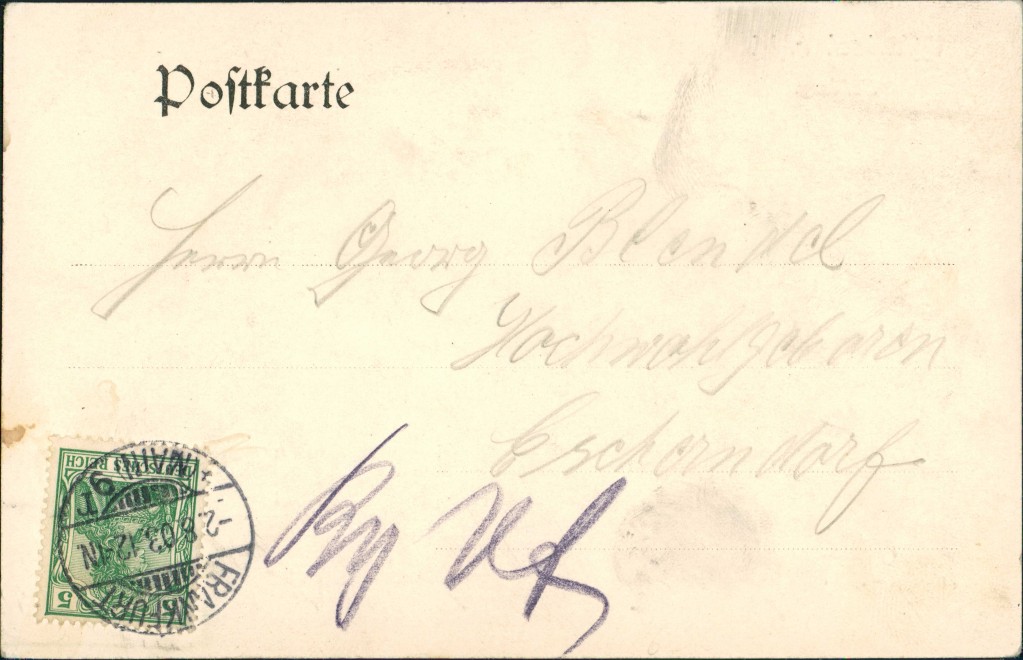 Postkarte
Herrn Georg Blendel
Hochwohlgeboren
Escherndorf
REICH
5
FRANKFURT
MAIN 9
-2.8.03.12-1N.